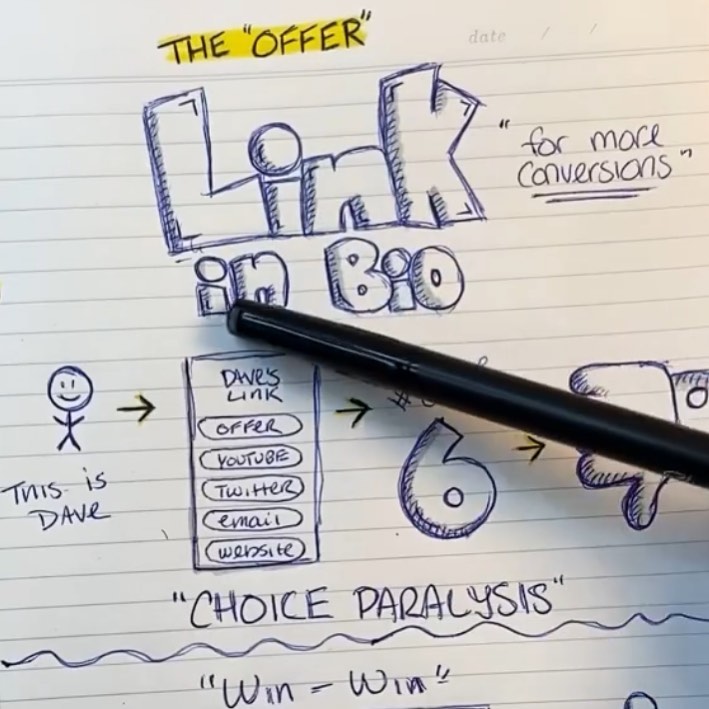 THE "OFFER"
date / /
Link
in Bio
"for more
conversions"
DAVE'S
LINK
OFFER
YOUTUBE
TWITTER
email
website
This is
DAVE
6
"CHOICE PARALYSIS"
"Win - Win"